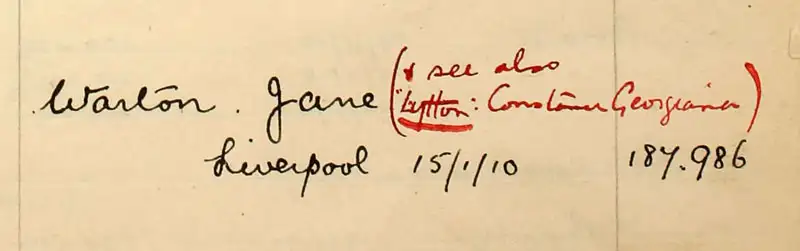 Warton. Jane (& see also
"Lytton: Constance Georgiana)
Liverpool 15/1/10 187.986